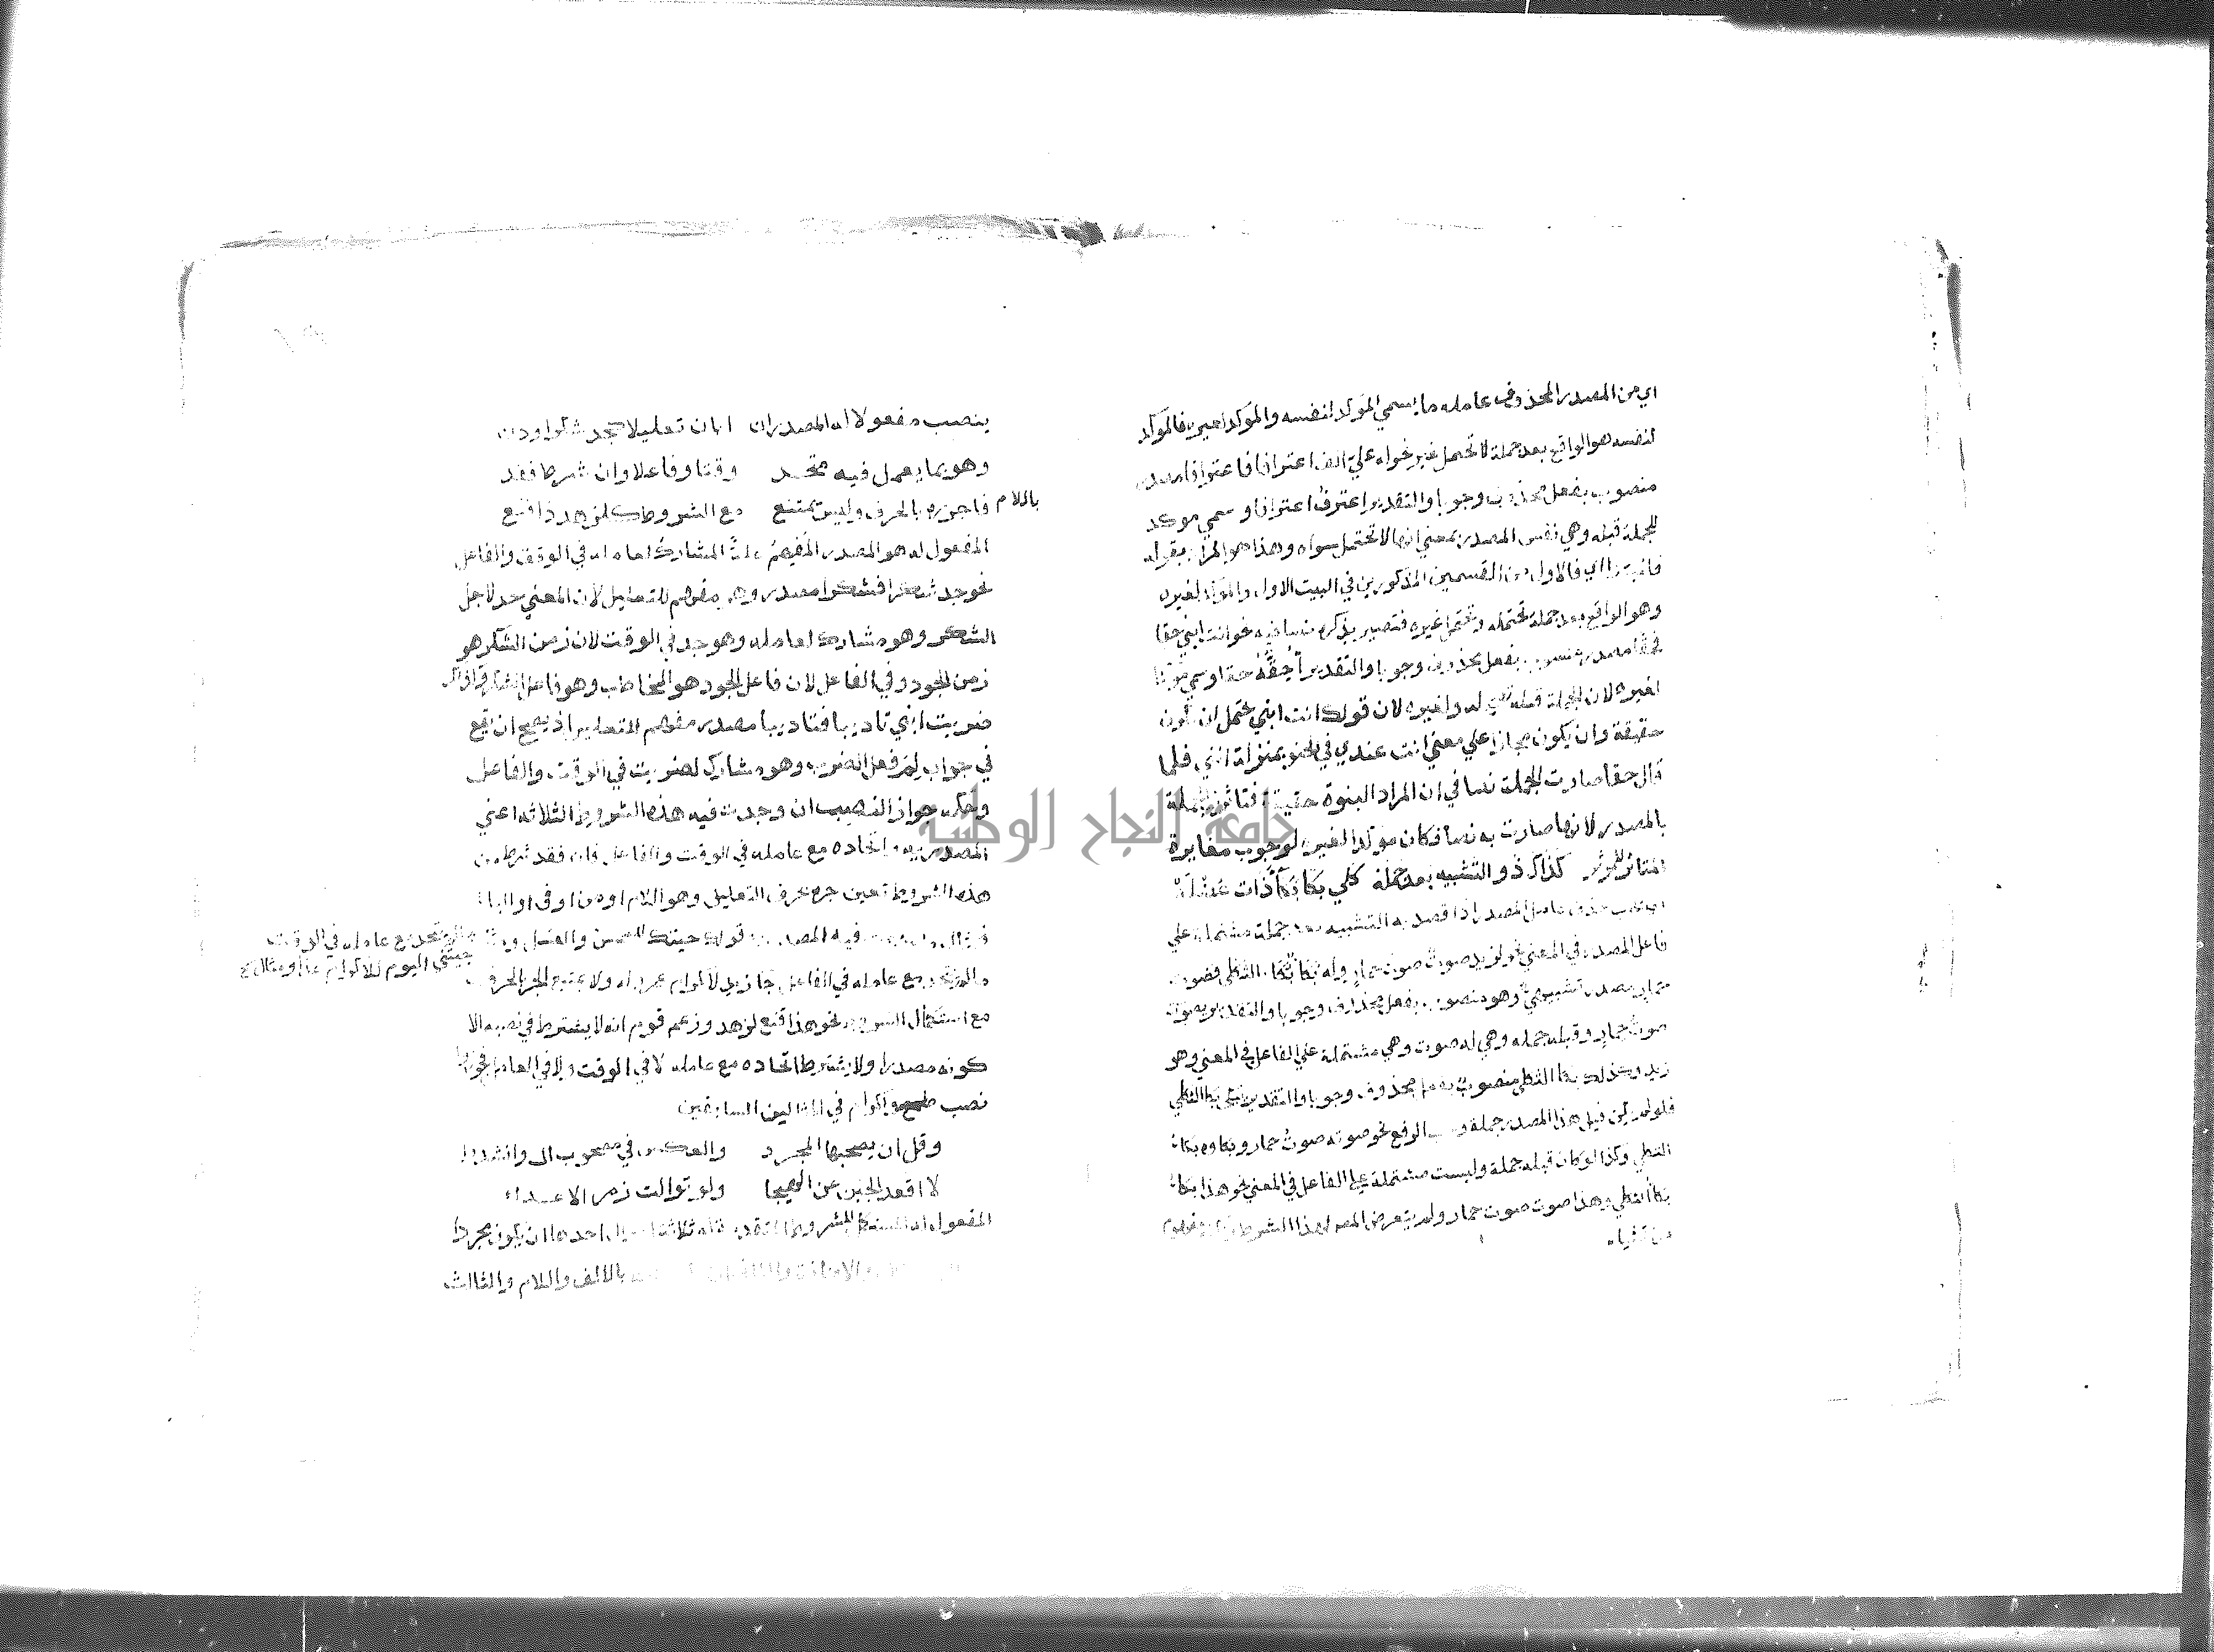 اي من المصدر المحذوف عامله ما يسمي الموكد لنفسه والموكد لغيره فالموكد
لنفسه هو الواقع بعد جملة لا تحتمل غيره نحو له علي الف اعترافا فاعترافا مصدر
منصوب بفعل محذوف وجوبا والتقدير اعترف اعترافا وسمي موكد
للجملة قبله وهي نفس المصدر بمعني انها لا تحتمل سواه وهذا هو المراد بقوله
فالمبتدا اي فالاول من القسمين المذكورين في البيت الاول والموكد لغيره
وهو الواقع بعد جملة تحتمله وتحتمل غيره فتصير بذكره نصا فيه نحو انت ابني حقا
فحقا مصدر منصوب بفعل محذوف وجوبا والتقدير أحقه حقا وسمي موكدا
لغيره لان الجملة قبله له ولغيره لان قولك انت ابني يحتمل ان يكون
حقيقة وان يكون مجازا علي معني انت عندي في الحنو بمنزلة ابني فلما
قال حقا صارت الجملة نصا في ان المراد البنوة حقيقة فتاثرت الجملة
بالمصدر لانها صارت به نصا فكان موكدا لغيره لوجوب مغايرة
المتاثر للموثر كذاك ذو التشبيه بعد جمله كلي بكا بكاء ذات عضله
حذف عامل المصدر اذا قصد به التشبيه بعد جملة مشتملة علي
فاعل المصدر في المعني نحو لزيد صوت صوت حمار وله بكا بكا الثكلي فصوت
حمار مصدر تشبيهي وهو منصوب بفعل محذوف وجوبا والتقدير يصوت
صوت حمار وقبله جمله وهي له صوت وهي مشتملة علي الفاعل في المعني وهو
زيد وكذلك بكا الثكلي منصوب بفعل محذوف وجوبا والتقدير يبكي بكا الثكلي
فلو لم يكن قبل هذا المصدر جملة وجب الرفع نحو صوته صوت حمار وبكاوه بكاء
الثكلي وكذا لو كان قبله جملة وليست مشتملة علي الفاعل في المعني نحو هذا بكاء
بكاء الثكلي وهذا صوت صوت حمار ولم يتعرض المص لهذا الشرط
ينصب مفعولا له المصدر ان ابان تعليلا كجد شكرا ودن
وهو بما يعمل فيه متحد وقتا وفاعلا وان شرط فقد
فاجرره بالحرف وليس يمتنع مع الشروط كلزهد ذا قنع
باللام
المفعول له هو المصدر المفهم علة المشارك لعامله في الوقت والفاعل
نحو جد شكرا فشكرا مصدر وهو مفهم للتعليل لان المعني جد لاجل
الشكر وهو مشارك لعامله وهو جد في الوقت لان زمن الشكر هو
زمن الجود وفي الفاعل لان فاعل الجود هو المخاطب وهو فاعل الشكر
ضربت ابني تاديبا فتاديبا مصدر مفهم للتعليل اذ يصح ان يقع
في جواب لم فعل الضرب وهو مشارك لضربت في الوقت والفاعل
وحكمه جواز النصب ان وجدت فيه هذه الشروط الثلاثه اعني
المصدريه واتحاده مع عامله في الوقت والفاعل فان فقد شرط من
هذه الشروط تعين جره بحرف التعليل وهو اللام او من او في او البا
فيه المصدرية قولك جيتك للسمن والعسل
لم يتحد مع عامله في الوقت
جيتني اليوم للاكرام غدا ومثال
ما لم يتحد مع عامله في الفاعل جا زيد لاكرام عمرو له ولا يمتنع الجر بالحرف
مع استكمال الشروط نحو هذا قنع لزهد وزعم قوم انه لا يشترط في نصبه الا
كونه مصدرا ولا يشترط اتحاده مع عامله لا في الوقت ولا في الفاعل
نصب واكرام في المثالين السابقين
وقل ان يصحبها المجرد والعكس في مصحوب ال وانشدوا
لا اقعد الجبن عن الهيجا ولو توالت زمر الاعداء
المفعول له المستكمل للشروط المتقدمة له ثلاثة احوال احدها ان يكون مجردا
والاضافة بالالف واللام والثالث